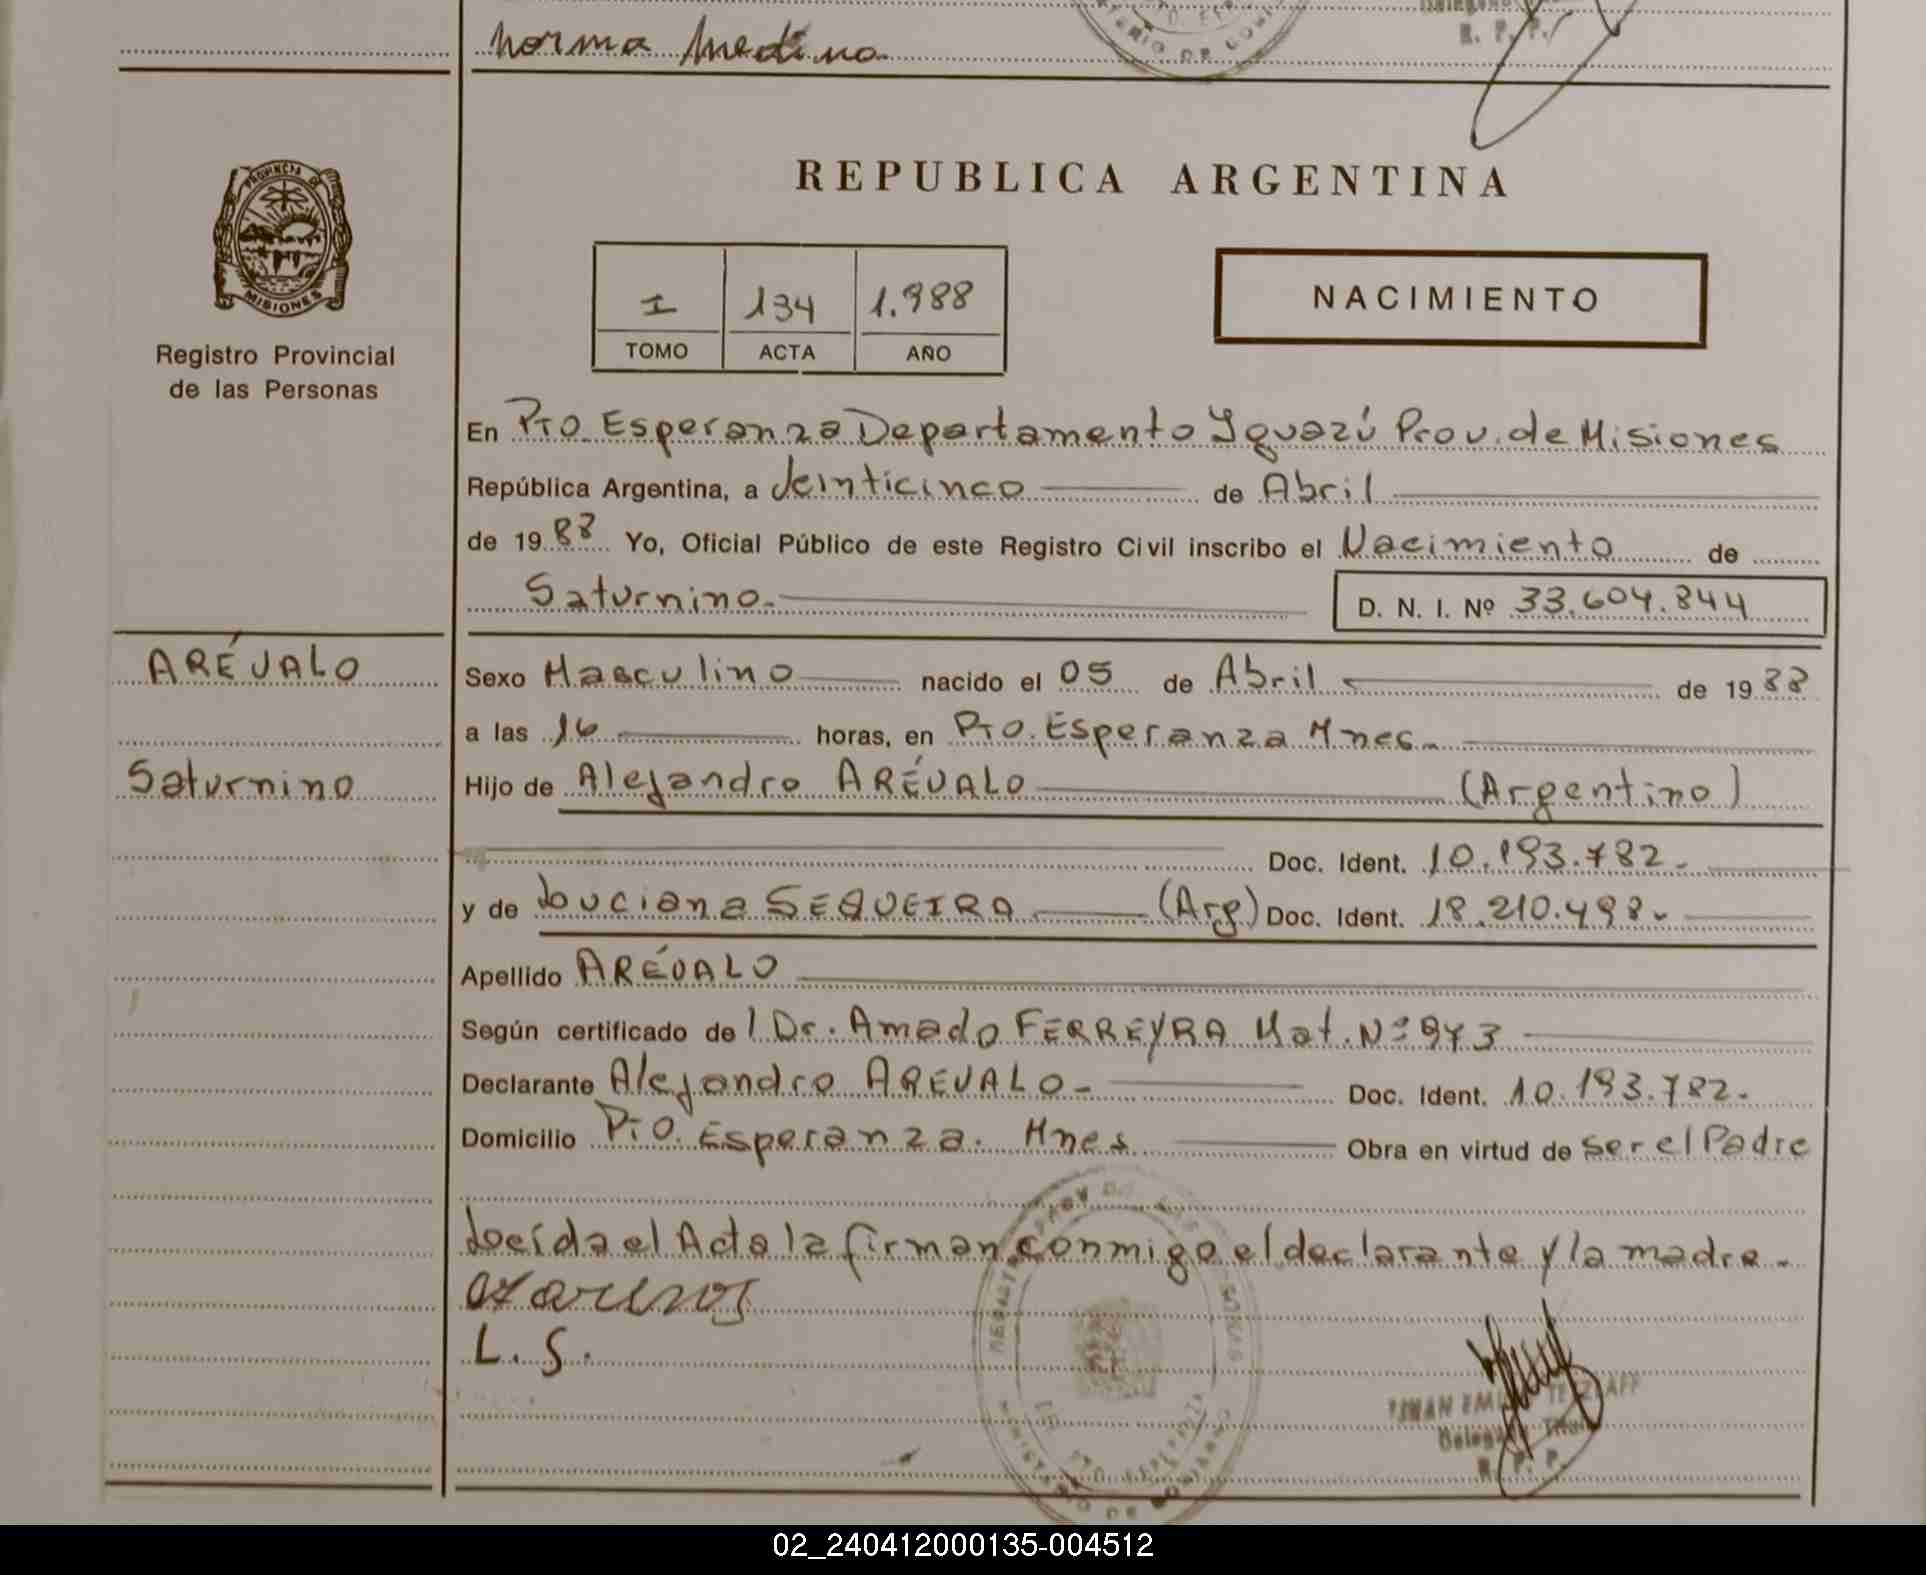 Norma Medina
MINISTERIO DE GOBIERNO
R. P. P.
PROVINCIA DE
MISIONES
Registro Provincial
de las Personas
REPUBLICA ARGENTINA
I 134 1.988
TOMO ACTA AÑO
NACIMIENTO
En Pto. Esperanza Departamento Yguazú Prov. de Misiones
República Argentina, a Veinticinco de Abril
de 1988 Yo, Oficial Público de este Registro Civil inscribo el Nacimiento de
Saturnino.- D. N. I. Nº 33.604.844
ARÉVALO
Saturnino
Sexo Masculino nacido el 05 de Abril de 1988
a las 16 horas, en Pto. Esperanza Mnes.-
Hijo de Alejandro ARÉVALO (Argentino)
Doc. Ident. 10.193.782.-
y de Luciana SEQUEIRA (Arg) Doc. Ident. 18.210.498.-
Apellido ARÉVALO
Según certificado del Dr. Amado FERREYRA Mat. Nº 973
Declarante Alejandro AREVALO.- Doc. Ident. 10.193.782.-
Domicilio Pto. Esperanza. Mnes Obra en virtud de ser el Padre
Leída el Acta la firman conmigo el declarante y la madre.-
L. S.
R. P. P.
MINISTERIO DE GOBIERNO
02_240412000135-004512